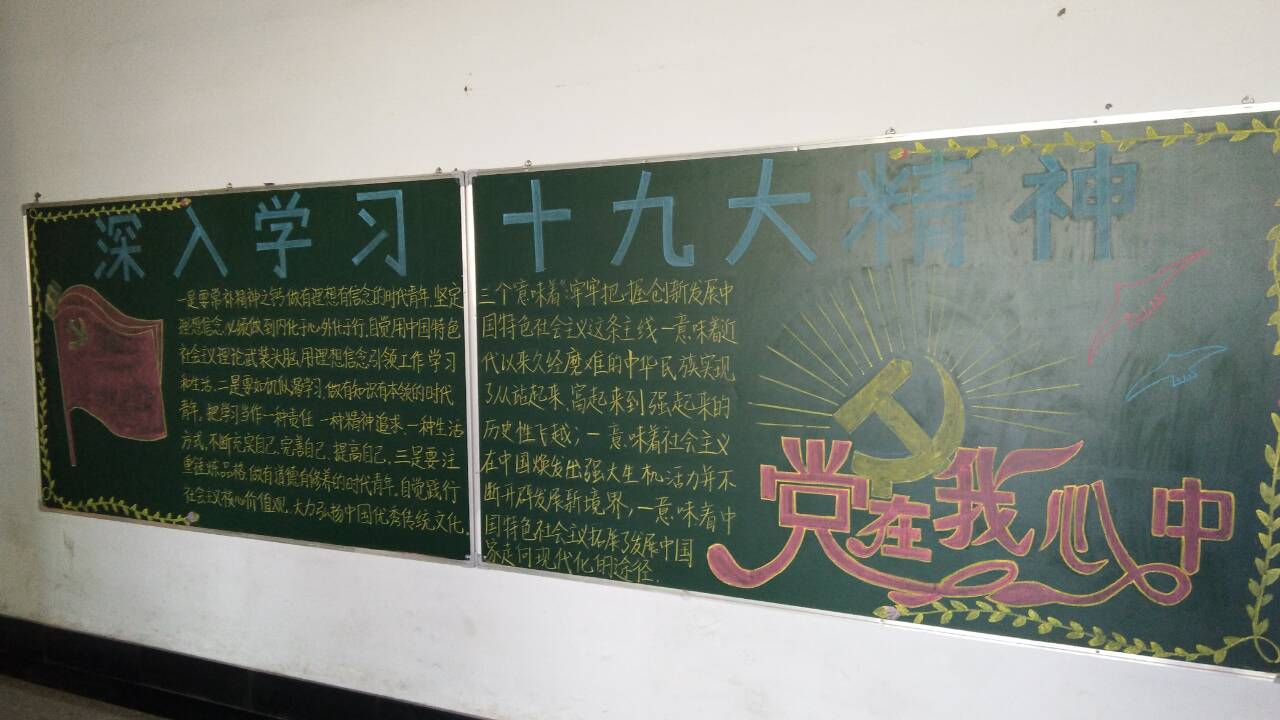 深入学习十九大精神
一是要常补精神之钙,做有理想有信念的时代青年,坚定
理想信念,必须做到内化于心,外化于行,自觉用中国特色
社会主义理论武装头脑,用理想信念引领工作学习
和生活,二是要如饥似渴学习,做有知识有本领的时代
青年,把学习当作一种责任、一种精神追求、一种生活
方式,不断充实自己,完善自己,提高自己,三是要注
重锤炼品格,做有道德有修养的时代青年,自觉践行
社会主义核心价值观,大力弘扬中国优秀传统文化。
三个"意味着",牢牢把握创新发展中
国特色社会主义这条主线一意味着近
代以来久经磨难的中华民族实现
了从站起来、富起来到强起来的
历史性飞越;一意味着社会主义
在中国焕发出强大生机活力并不
断开辟发展新境界,一意味着中
国特色社会主义拓展了发展中国
家走向现代化的途径.
党在我心中